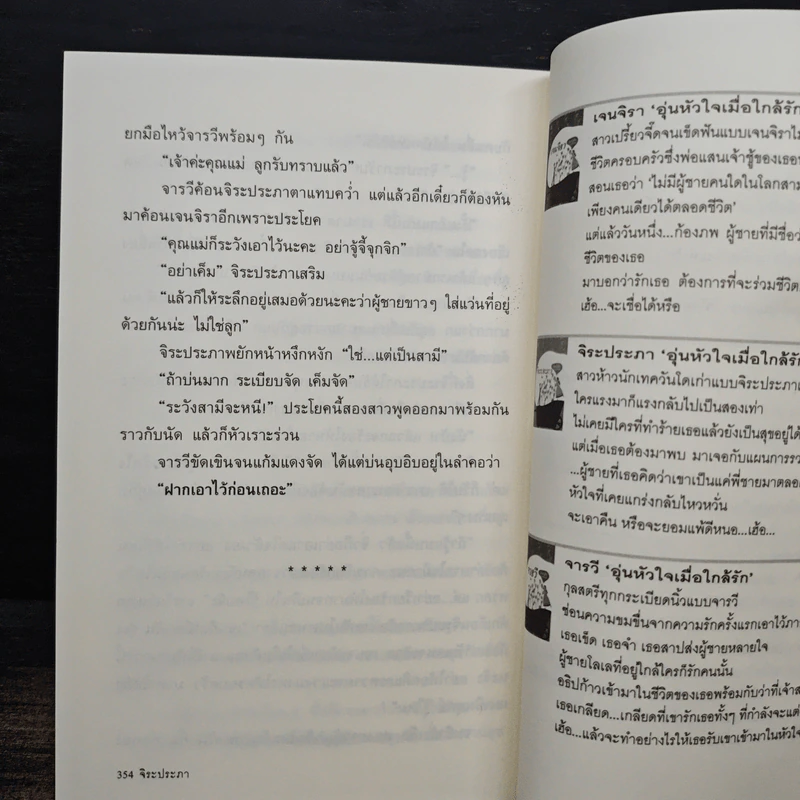 ยกมือไหว้จารวีพร้อมๆ กัน
“เจ้าค่ะคุณแม่ ลูกรับทราบแล้ว”
จารวีค้อนจิระประภาตาแทบคว่ำ แต่แล้วอีกเดี๋ยวก็ต้องหัน
มาค้อนเจนจิราอีกเพราะประโยค
“คุณแม่ก็ระวังเอาไว้นะคะ อย่าจู้จี้จุกจิก”
“อย่าเค็ม” จิระประภาเสริม
“แล้วก็ให้ระลึกอยู่เสมอด้วยนะคะว่าผู้ชายขาวๆ ใส่แว่นที่อยู่
ด้วยกันน่ะ ไม่ใช่ลูก”
จิระประภาพยักหน้าหงึกหงัก “ใช่...แต่เป็นสามี”
“ถ้าบ่นมาก ระเบียบจัด เค็มจัด”
“ระวังสามีจะหนี!” ประโยคนี้สองสาวพูดออกมาพร้อมกัน
ราวกับนัด แล้วก็หัวเราะร่วน
จารวีขัดเขินจนแก้มแดงจัด ได้แต่บ่นอุบอิบอยู่ในลำคอว่า
“ฝากเอาไว้ก่อนเถอะ”
* * * * *
354 จิระประภา
เจนจิรา ‘อุ่นหัวใจเมื่อใกล้รัก
สาวเปรี้ยวจี๊ดจนเข็ดฟันแบบเจนจิราไม่
ชีวิตครอบครัวซึ่งพ่อแสนเจ้าชู้ของเธอ
สอนเธอว่า ‘ไม่มีผู้ชายคนใดในโลก
เพียงคนเดียวได้ตลอดชีวิต’
แต่แล้ววันหนึ่ง...ก้องภพ ผู้ชายที่มีชื่อ
ชีวิตของเธอ
มาบอกว่ารักเธอ ต้องการที่จะร่วมชีวิต
เฮ้อ...จะเชื่อได้หรือ
จิระประภา ‘อุ่นหัวใจเมื่อใกล้รัก
สาวห้าวนักเทควันโดเก่าแบบจิระประภา
ใครแรงมาก็แรงกลับไปเป็นสองเท่า
ไม่เคยมีใครที่ทำร้ายเธอแล้วยังเป็นสุขอยู่ได้
แต่เมื่อเธอต้องมาพบ มาเจอกับแผนการ
...ผู้ชายที่เธอคิดว่าเขาเป็นแค่พี่ชายมาตลอด
หัวใจที่เคยแกร่งกลับไหวหวั่น
จะเอาคืน หรือจะยอมแพ้ดีหนอ...เฮ้อ...
จารวี ‘อุ่นหัวใจเมื่อใกล้รัก’
กุลสตรีทุกกระเบียดนิ้วแบบจารวี
ซ่อนความขมขื่นจากความรักครั้งแรกเอาไว้
เธอเข็ด เธอจำ เธอสาปส่งผู้ชายหลายใจ
ผู้ชายโลเลที่อยู่ใกล้ใครก็รักคนนั้น
อธิปก้าวเข้ามาในชีวิตของเธอพร้อมกับว่าที่เจ้า
เธอเกลียด...เกลียดที่เขารักเธอทั้งๆ ที่กำลังจะ
เฮ้อ...แล้วจะทำอย่างไรให้เธอรับเขาเข้ามาในหัวใจ